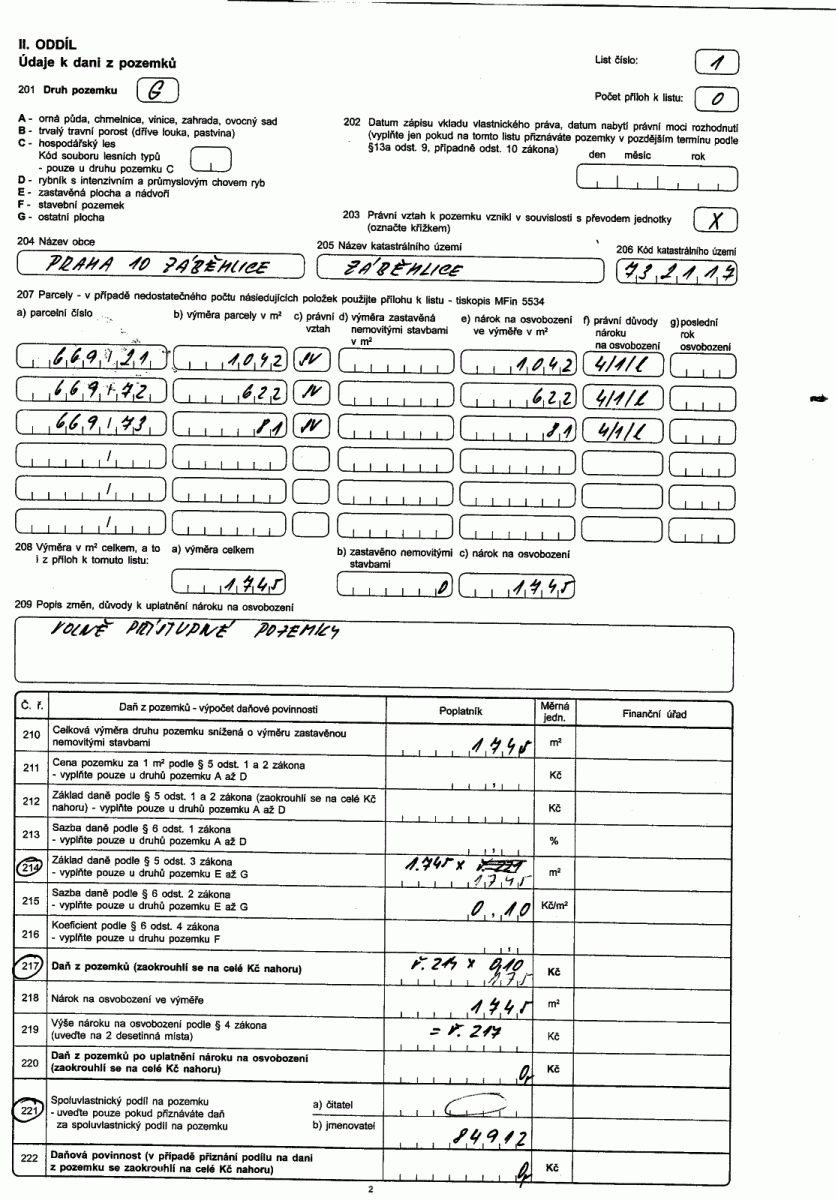 II. ODDÍL
Údaje k dani z pozemků
List číslo: 1
201 Druh pozemku G
Počet příloh k listu: 0
A - orná půda, chmelnice, vinice, zahrada, ovocný sad
B - trvalý travní porost (dříve louka, pastvina)
C - hospodářský les
Kód souboru lesních typů
- pouze u druhu pozemku C
D - rybník s intenzivním a průmyslovým chovem ryb
E - zastavěná plocha a nádvoří
F - stavební pozemek
G - ostatní plocha
202 Datum zápisu vkladu vlastnického práva, datum nabytí právní moci rozhodnutí
(vyplňte jen pokud na tomto listu přiznáváte pozemky v pozdějším termínu podle
§13a odst. 9, případně odst. 10 zákona)
den měsíc rok
203 Právní vztah k pozemku vznikl v souvislosti s převodem jednotky
(označte křížkem) X
204 Název obce
PRAHA 10 ZÁBĚHLICE
205 Název katastrálního území
ZÁBĚHLICE
206 Kód katastrálního území
732117
207 Parcely - v případě nedostatečného počtu následujících položek použijte přílohu k listu - tiskopis MFin 5534
a) parcelní číslo b) výměra parcely v m² c) právní vztah d) výměra zastavěná nemovitými stavbami v m² e) nárok na osvobození ve výměře v m² f) právní důvody nároku na osvobození g) poslední rok osvobození
669/21 1042 SV 1042 4/1/l
669/72 622 SV 622 4/1/l
669/73 81 SV 81 4/1/l
/
/
/
208 Výměra v m² celkem, a to i z příloh k tomuto listu:
a) výměra celkem
1745
b) zastavěno nemovitými stavbami
0
c) nárok na osvobození
1745
209 Popis změn, důvody k uplatnění nároku na osvobození
VOLNĚ PŘÍSTUPNÉ POZEMKY
Č. ř. Daň z pozemků - výpočet daňové povinnosti Poplatník Měrná jedn. Finanční úřad
210 Celková výměra druhu pozemku snížená o výměru zastavěnou
nemovitými stavbami 1745 m²
211 Cena pozemku za 1 m² podle § 5 odst. 1 a 2 zákona
- vyplňte pouze u druhů pozemku A až D , Kč
212 Základ daně podle § 5 odst. 1 a 2 zákona (zaokrouhlí se na celé Kč
nahoru) - vyplňte pouze u druhů pozemku A až D Kč
213 Sazba daně podle § 6 odst. 1 zákona
- vyplňte pouze u druhů pozemku A až D , %
214 Základ daně podle § 5 odst. 3 zákona 1.745 x ř. 221
- vyplňte pouze u druhů pozemku E až G 1745 m²
215 Sazba daně podle § 6 odst. 2 zákona
- vyplňte pouze u druhů pozemku E až G 0,10 Kč/m²
216 Koeficient podle § 6 odst. 4 zákona
- vyplňte pouze u druhu pozemku F ,
217 Daň z pozemků (zaokrouhlí se na celé Kč nahoru) ř. 214 x 0,10 175 Kč
218 Nárok na osvobození ve výměře 1745 m²
219 Výše nároku na osvobození podle § 4 zákona = ř. 217
(uveďte na 2 desetinná místa) Kč
220 Daň z pozemků po uplatnění nároku na osvobození
(zaokrouhlí se na celé Kč nahoru) 0 Kč
221 Spoluvlastnický podíl na pozemku a) čitatel
- uveďte pouze pokud přiznáváte daň
za spoluvlastnický podíl na pozemku b) jmenovatel 84912
222 Daňová povinnost (v případě přiznání podílu na dani
z pozemku se zaokrouhlí na celé Kč nahoru) 0 Kč
2